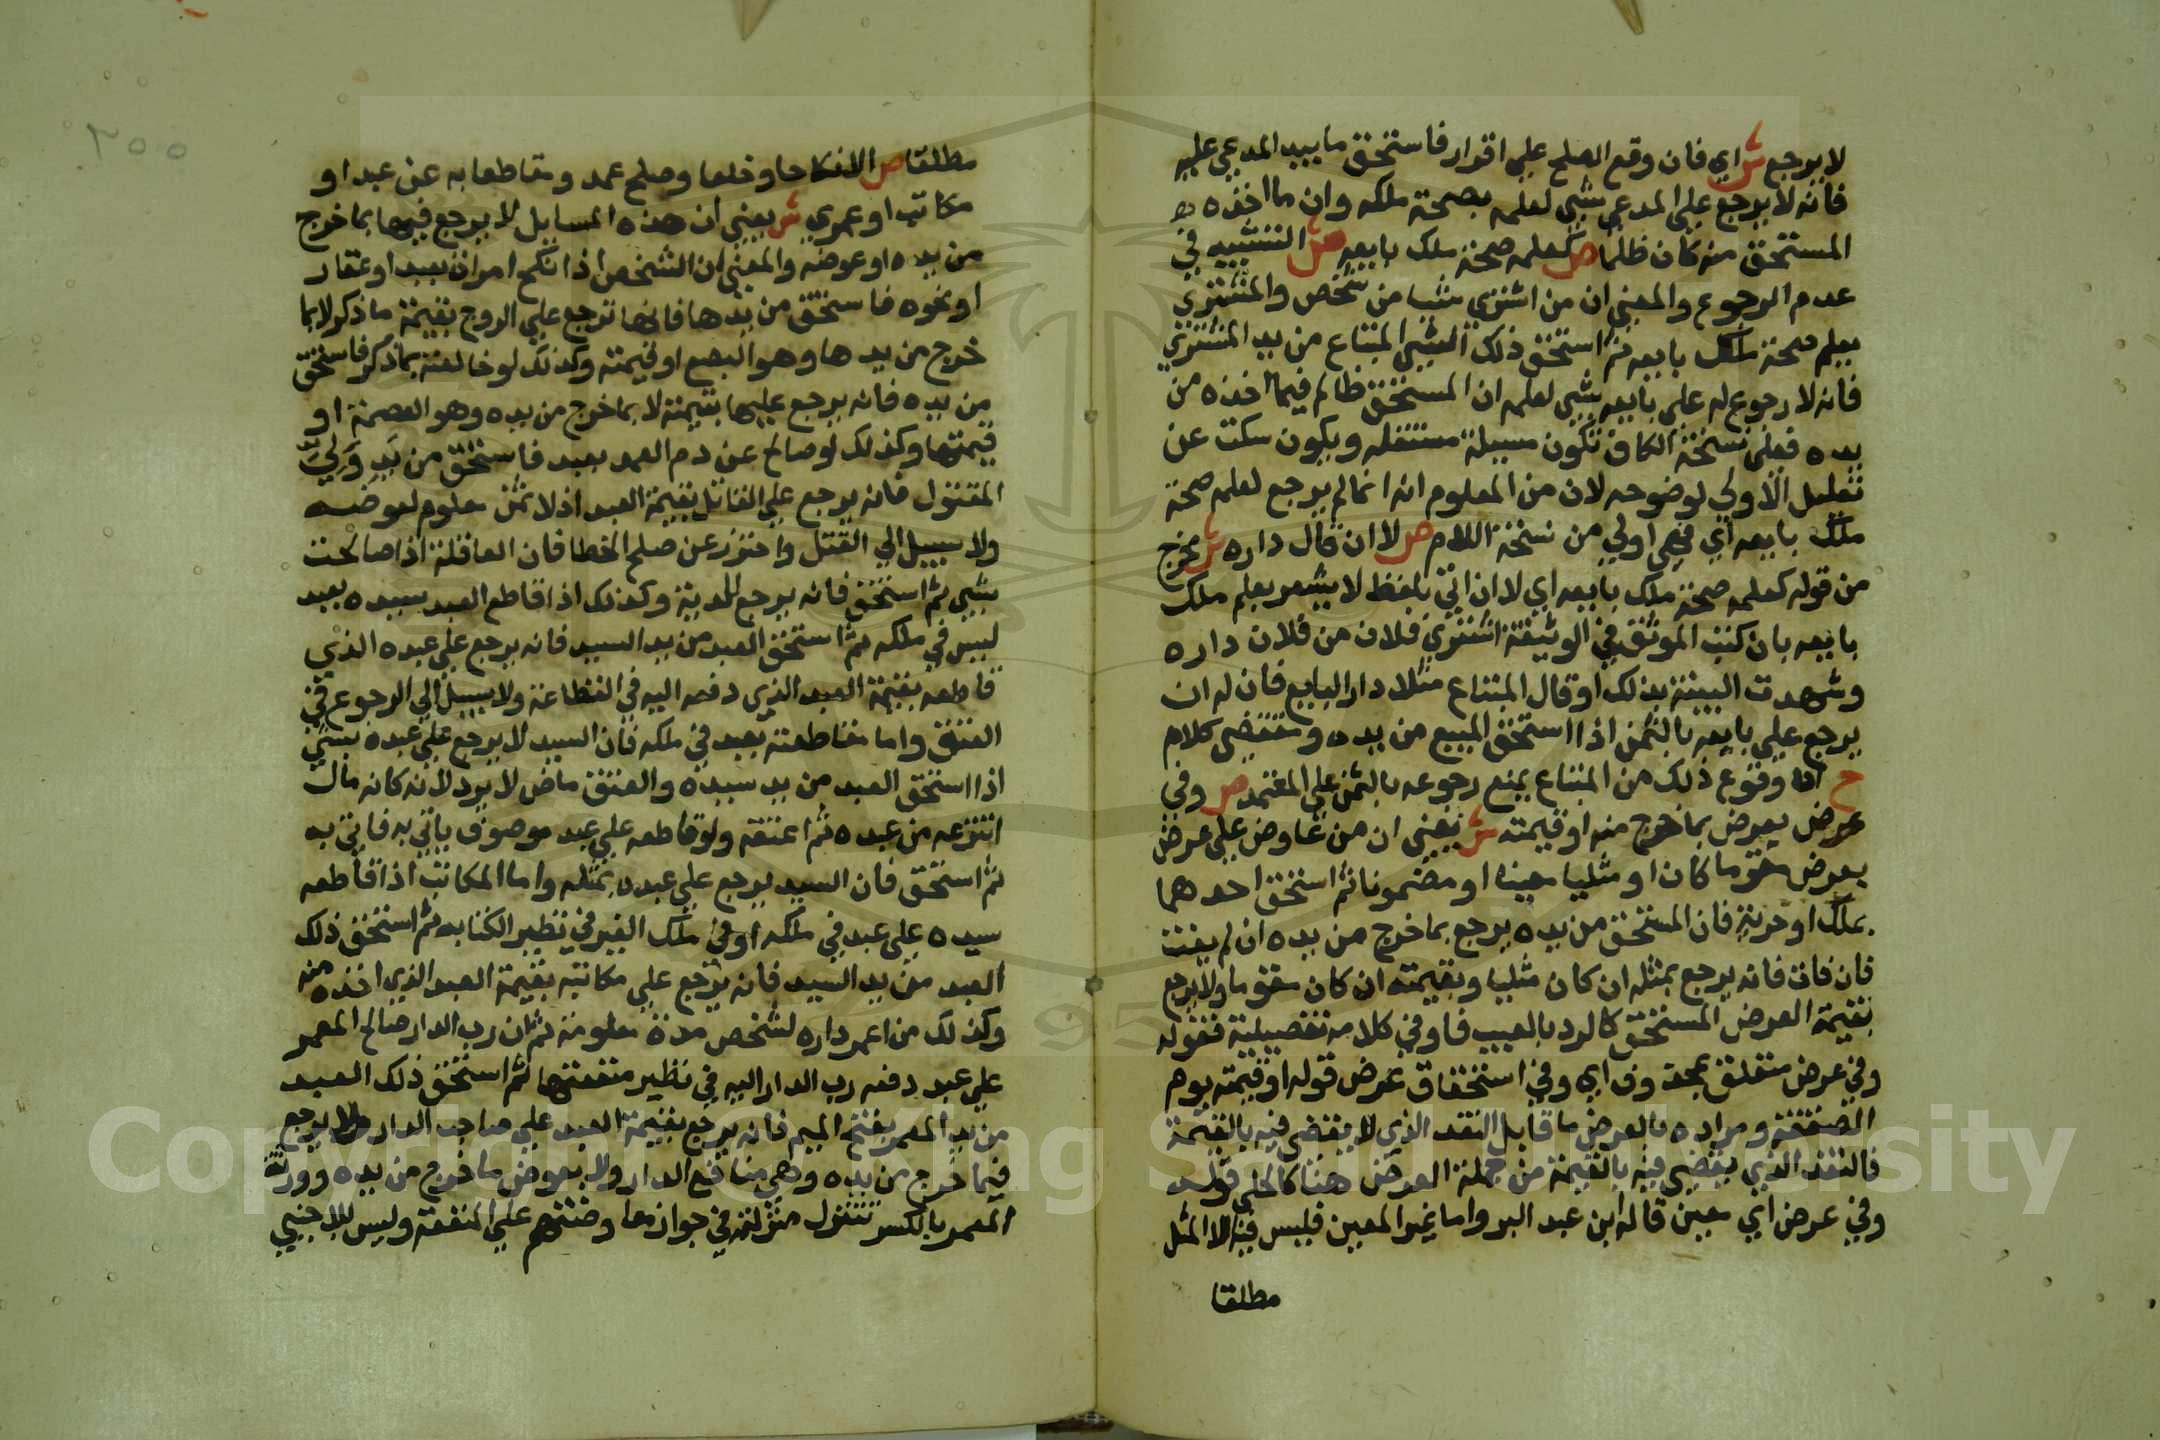 لا يرجع ش اي فان وقع الصلح علي اقرار فاستحق ما بيد المدعي عليه
فانه لا يرجع علي المدعي بشي لعلمه بصحة ملكه وان ما اخذه
المستحق منه كان ظلما ص كعلمه صحة ملك بايعه ش التشبيه في
عدم الرجوع والمعني ان من اشتري شيا من شخص والمشتري
يعلم صحة ملك بايعه ثم استحق ذلك الشي المبتاع من يد المشتري
فانه لا رجوع له علي بايعه بشي لعلمه ان المستحق ظالم فيما اخذه من
يده فعلي نسخة الكاف تكون مسيلة مستقله ويكون سكت عن
تعليل الاولي لوضوحه لان من المعلوم انه انما لم يرجع لعلمه صحة
ملك بايعه اي فهي اولي من نسخة اللام ص لا ان قال داره ش مخرج
من قوله كعلمه صحة ملك بايعه اي لا ان اتي بلفظ لا يشعر بعلم ملك
بايعه بان كتب الموثق في الوثيقة اشتري فلان من فلان داره
وشهدت البينة بذلك او قال المبتاع مثلا دار البايع فان له ان
يرجع علي بايعه بالثمن اذا استحق المبيع من يده ومقتضي كلام
ح ان وقوع ذلك من المبتاع يمنع رجوعه بالثمن علي المعتمد ص وفي
عرض بعرض بما خرج منه او قيمته ش يعني ان من عاوض علي عرض
بعرض مقوما كان او مثليا معينا او مضمونا ثم استحق احدهما
بملك او حرية فان المستحق من يده يرجع بما خرج من يده ان لم يفت
فان فات فانه يرجع بمثله ان كان مثليا وبقيمته ان كان مقوما ولا يرجع
بقيمة العرض المستحق كالرد بالعيب فاو في كلامه تفصيلية فقوله
وفي عرض متعلق بمحذوف اي وفي استحقاق عرض قوله او قيمته يوم
الصفقة ومراده بالعرض ما قابل النقد الذي لا يقضي فيه بالقيمة
فالنقد الذي يقضي فيه بالقيمة من جملة العرض هنا كالحلي قوله
وفي عرض اي معين قاله ابن عبد البر واما غير المعين فليس فيه الا المثل
مطلقا
مطلقا ص الا نكاحا وخلعا وصلح عمد ومقاطعا به عن عبد او
مكاتب او عمري ش يعني ان هذه المسايل لا يرجع فيها بما خرج
من يده او عوضه والمعني ان الشخص اذا نكح امراة بعبد او عقار
او نحوه فاستحق من يدها فانها ترجع علي الزوج بقيمة ما ذكر لا بما
خرج من يدها وهو البضع او قيمته وكذلك لو خالعته بما ذكر فاستحق
من يده فانه يرجع عليها بقيمته لا بما خرج من يده وهو العصمة او
قيمتها وكذلك لو صالح عن دم العمد بعبد فاستحق من يد ولي
المقتول فانه يرجع علي القاتل بقيمة العبد اذ لا ثمن معلوم لعوضه
ولا سبيل الي القتل واحترز عن صلح الخطا فان العاقلة اذا صالحت
بشي ثم استحق فانه يرجع للدية وكذلك اذا قاطع العبد سيده بعبد
ليس في ملكه ثم استحق العبد من يد السيد فانه يرجع علي عبده الذي
قاطعه بقيمة العبد الذي دفعه اليه في القطاعة ولا سبيل الي الرجوع في
العتق واما مقاطعته بعبد في ملكه فان السيد لا يرجع علي عبده بشي
اذا استحق العبد من يد سيده والعتق ماض لا يرد لانه كانه مال
انتزعه من عبده ثم اعتقه ولو قاطعه علي عبد موصوف ياتي به فاتي به
ثم استحق فان السيد يرجع علي عبده بمثله واما المكاتب اذا قاطعه
سيده علي عبد في ملكه او في ملك الغير في نظير الكتابه ثم استحق ذلك
العبد من يد السيد فانه يرجع علي مكاتبه بقيمة العبد الذي اخذه منه
وكذلك من اعمر داره لشخص مدة معلومة ثم ان رب الدار صالح المعمر
علي عبد دفعه رب الدار اليه في نظير منفعتها ثم استحق ذلك العبد
من يد المعمر بفتح الميم فانه يرجع بقيمة العبد علي صاحب الدار ولا يرجع
فيما خرج من يده وهي منافع الدار ولا بعوض ما خرج من يده وورثة
المعمر بالكسر تتنزل منزلته في جواز معاوضتهم علي المنفعة وليس للاجنبي
٢٥٥
Copyright © King Saud University